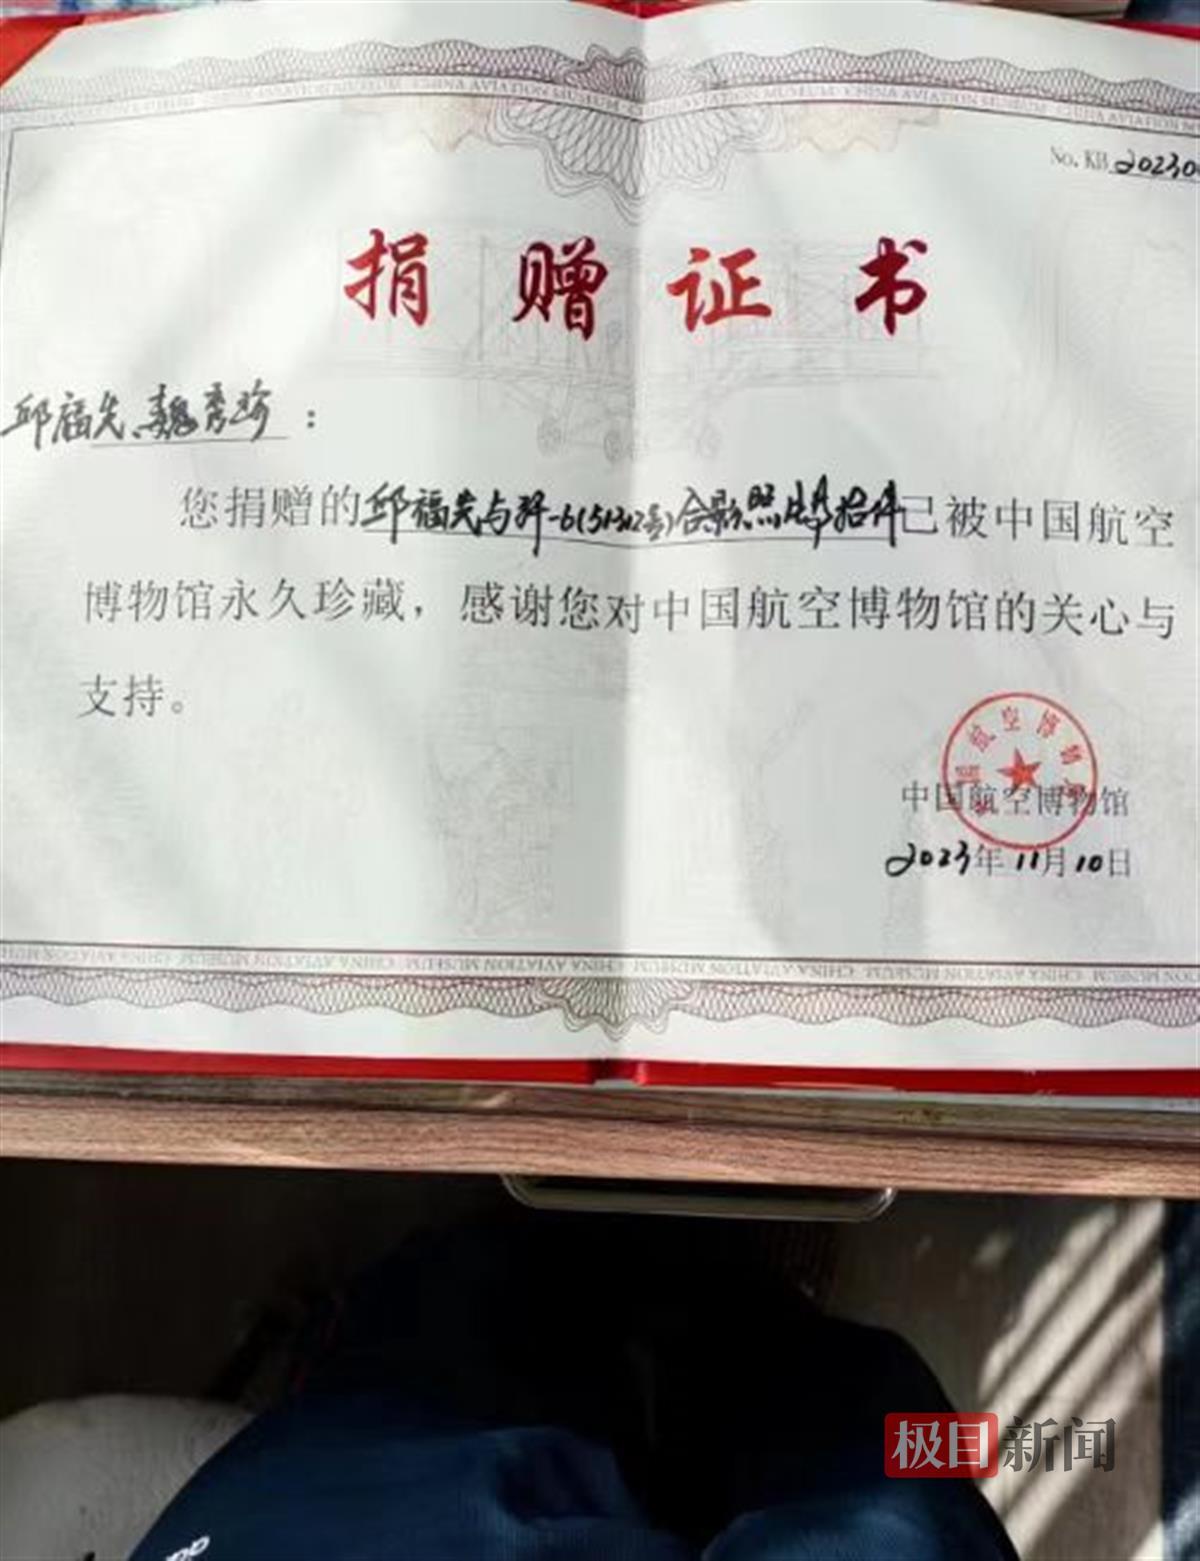 CHINA AVIATION MUSEUM CHINA AVIATION MUSEUM CHINA AVIATION
No. KB 20230
捐赠证书
邱福先、魏秀珍：
您捐赠的邱福先与歼-6(51312号)合影照片等拾件已被中国航空
博物馆永久珍藏，感谢您对中国航空博物馆的关心与
支持。
航空博物
中国航空博物馆
2023年11月10日
CHINA AVIATION MUSEUM CHINA AVIATION MUSEUM CHINA AVIATION MUSEUM
极目新闻